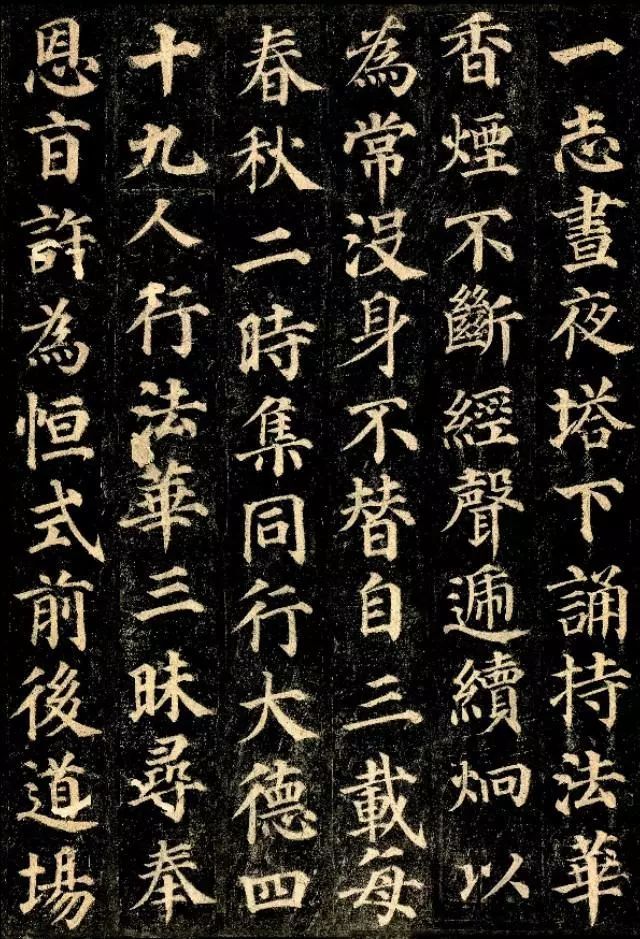 一志晝夜塔下誦持法華
香煙不斷經聲遞續炯以
為常没身不替自三載每
春秋二時集同行大德四
十九人行法華三昧尋奉
恩旨許為恒式前後道場